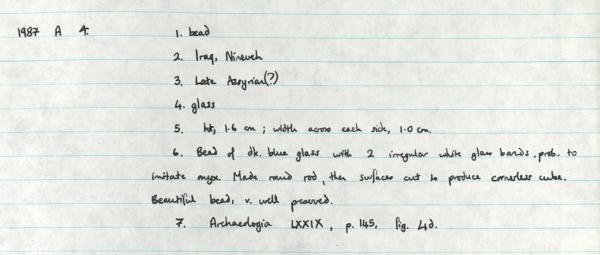 1987 A 4. 1. bead
2. Iraq, Nineveh
3. Late Assyrian(?)
4. glass
5. ht, 1.6 cm ; width across each side, 1.0 cm.
6. Bead of dk. blue glass with 2 irregular white glass bands, prob. to
imitate onyx. Made round rod, then surfaces cut to produce cornerless cube.
Beautiful bead, v. well preserved.
7. Archaeologia LXXIX, p. 145, fig. 4d.